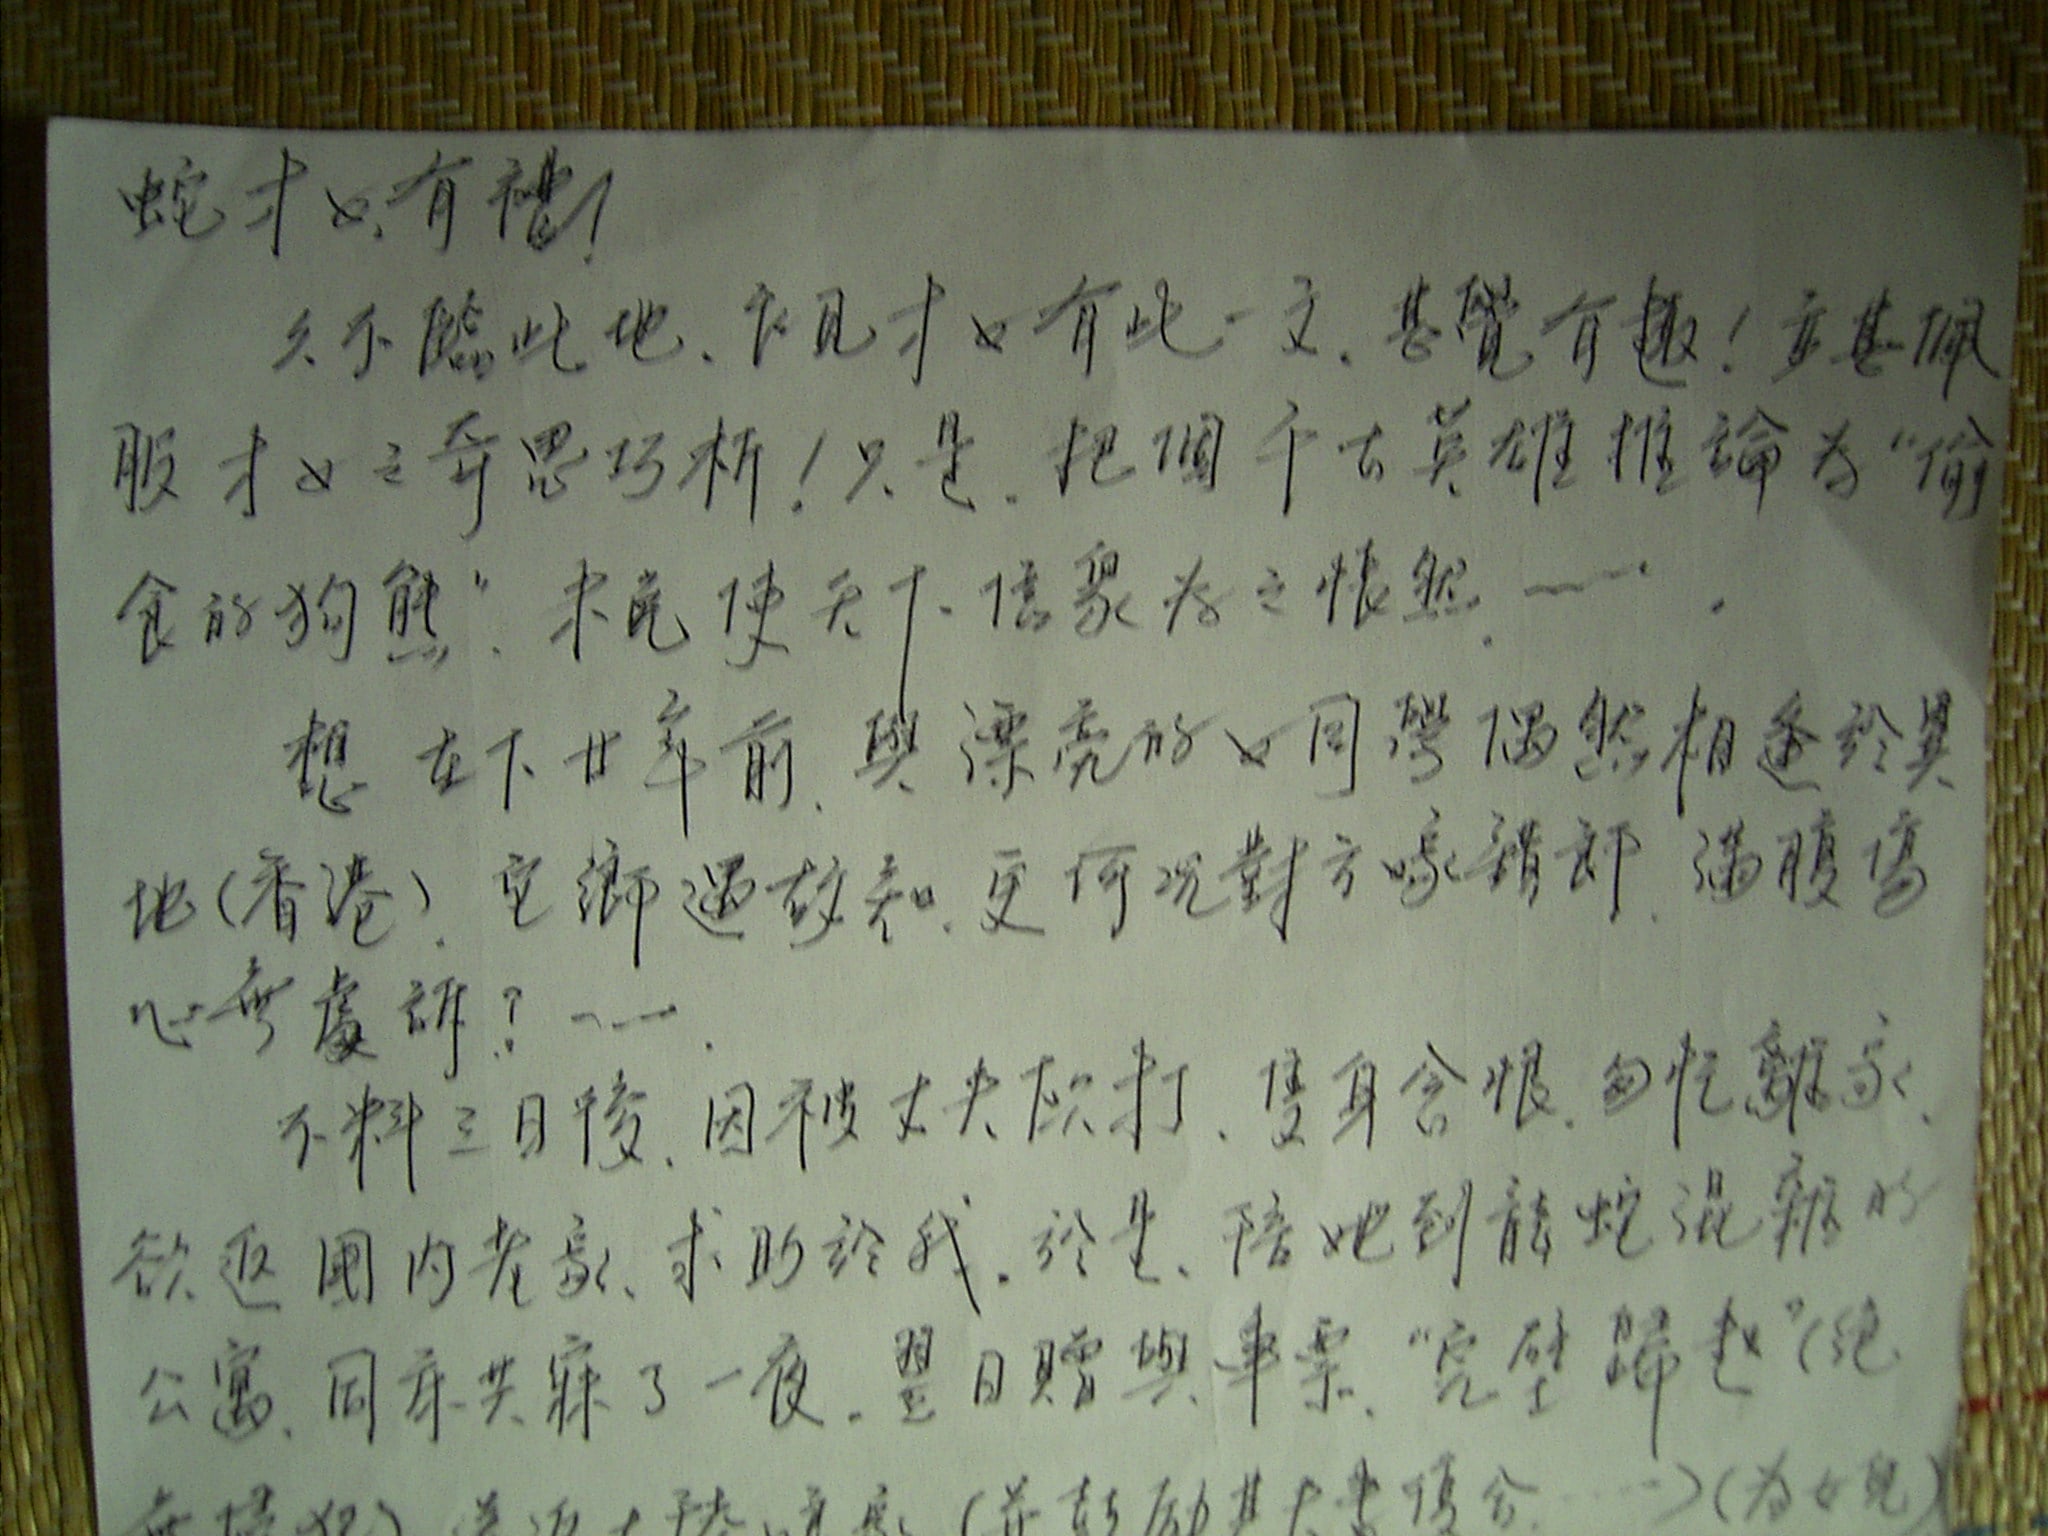 蛇才女有禮!
久不臨此地、乍見才女有此一文、甚覺有趣!亦甚佩
服才女之奇思巧析!只是、把個千古英雄推論為“偷
食的狗熊”、未免使天下信眾為之悵然。……
想在下廿年前、與漂亮的女同學偶然相逢於異
地(香港)、它鄉遇故知、更何況對方嫁錯郎、滿腹傷
心無處訴?……
不料三日後、因被丈夫欧打、隻身含恨、匆忙離家、
欲返國內老家、求助於我。於是、陪她到龍蛇混雜的
公寓、同床共寐了一夜。翌日贈與車票、“完璧歸趙”(絕
無 )、 返大陸 家(並鼓勵其夫妻復合……)(為女兒)